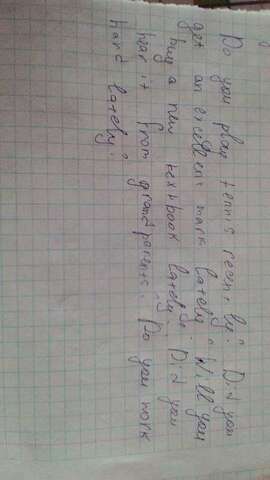 Do you play tennis recently? Did you
get an excellent mark lately? Will you
buy a new textbook lately? Did you
hear it from grandparents? Do you work
hard lately?